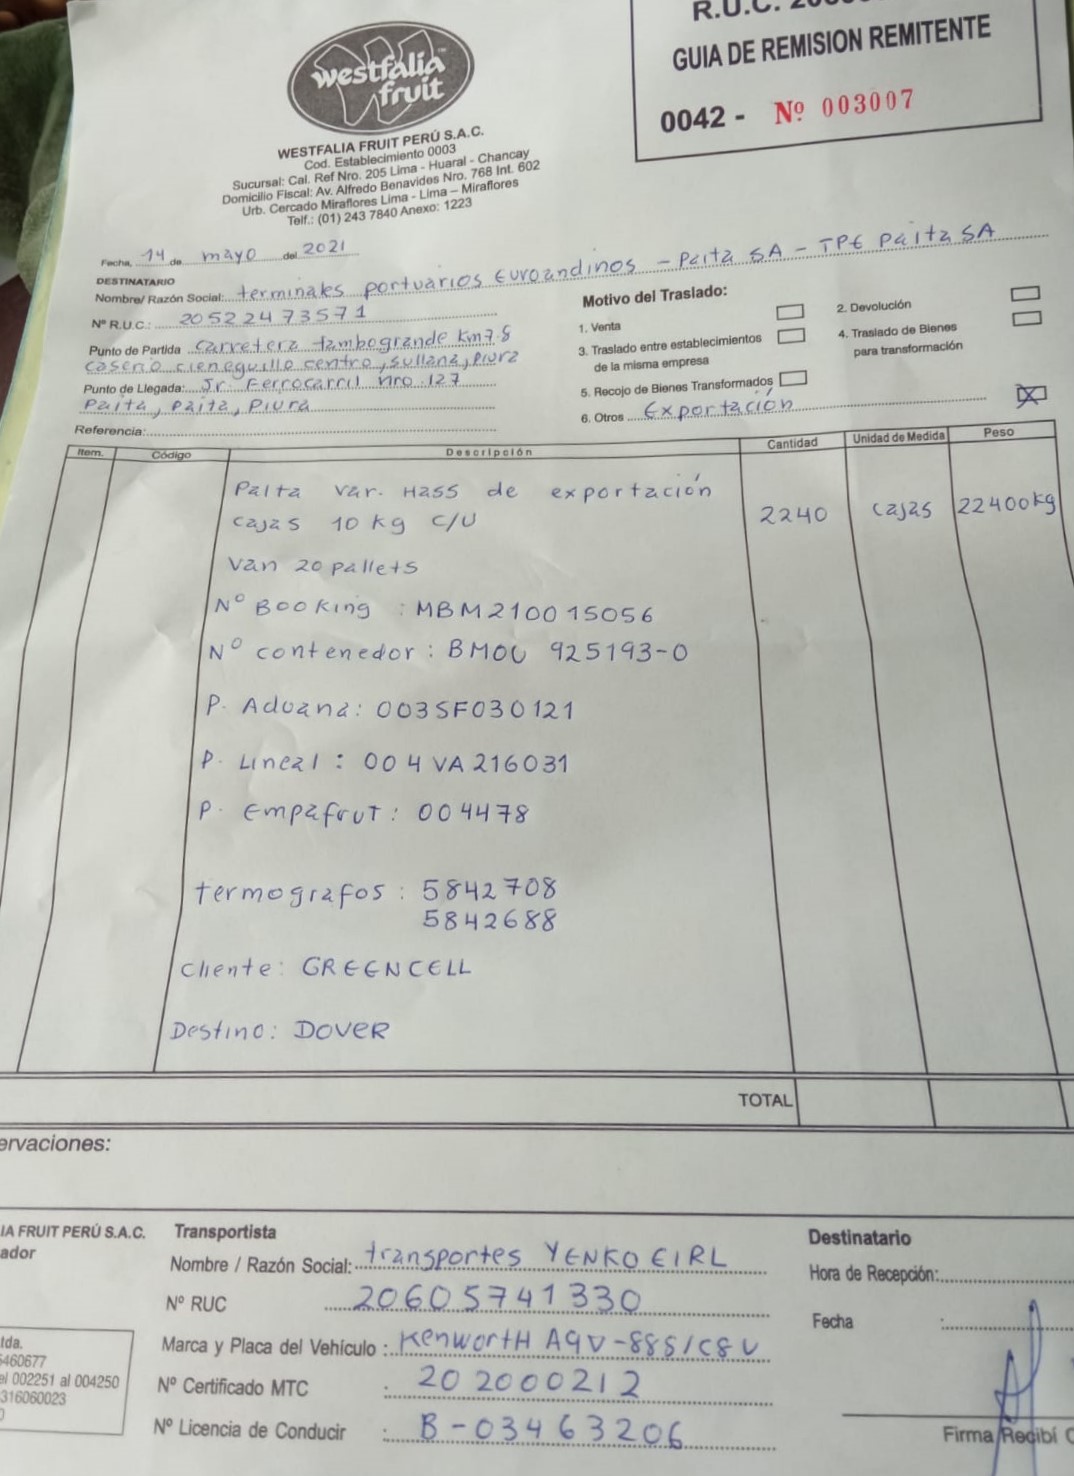 westfalia
fruit
WESTFALIA FRUIT PERÚ S.A.C.
Cod. Establecimiento 0003
Sucursal: Cal. Ref Nro. 205 Lima - Huaral - Chancay
Domicilio Fiscal: Av. Alfredo Benavides Nro. 768 Int. 602
Urb. Cercado Miraflores Lima - Lima – Miraflores
Telf.: (01) 243 7840 Anexo: 1223
R.U.C.
GUIA DE REMISION REMITENTE
0042 - Nº 003007
Fecha, 14 de mayo del 2021
DESTINATARIO
Nombre/ Razón Social: terminales portuarios Euroandinos - Paita SA - TPE Paita SA
Nº R.U.C.: 20522473571
Punto de Partida Carretera tambogrande Km7.8
caserio cieneguillo centro, sullana, piura
Punto de Llegada: Jr. Ferrocarril nro. 127
Paita, Paita, Piura
Referencia:
Motivo del Traslado:
1. Venta
2. Devolución
3. Traslado entre establecimientos
de la misma empresa
4. Traslado de Bienes
para transformación
5. Recojo de Bienes Transformados
6. Otros Exportación
Item. Código Descripción Cantidad Unidad de Medida Peso
Palta var. Hass de exportación
cajas 10 kg c/u 2240 cajas 22400kg
Van 20 pallets
Nº Booking : MBM210015056
Nº contenedor : BMOU 925193-0
P. Aduana: 003SF030121
P. Lineal : 004VA216031
P. Empafrut : 004478
termografos : 5842708
5842688
Cliente: GREENCELL
Destino: DOVER
TOTAL
ervaciones:
IA FRUIT PERÚ S.A.C.
ador
ltda.
5460677
el 002251 al 004250
316060023
Transportista
Nombre / Razón Social: transportes YENKO EIRL
Nº RUC 20605741330
Marca y Placa del Vehículo : KenwortH A9V-885/C8U
Nº Certificado MTC : 202000212
Nº Licencia de Conducir : B-03463206
Destinatario
Hora de Recepción:
Fecha :
Firma Recibí C